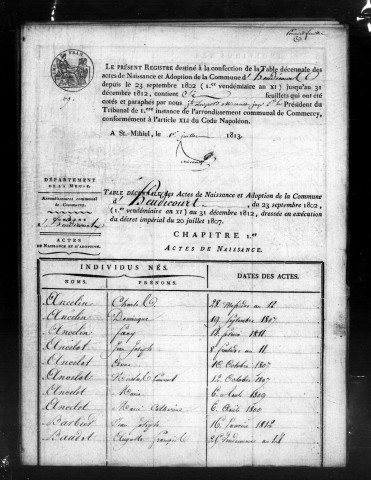 LE PRÉSENT REGISTRE destiné à la confection de la Table décennale des
actes de Naissance et Adoption de la Commune d'heudicourt
depuis le 23 septembre 1802 (1.er vendémiaire an XI) jusqu'au 31
décembre 1812, contient feuillets qui ont été
cotés et paraphés par nous Président du
Tribunal de 1.re instance de l'arrondissement communal de Commercy,
conformément à l'article XLI du Code Napoléon.
A ST.-MIHIEL, le 1er juillet 1813.
DÉPARTEMENT
DE LA MEUSE.
Arrondissement communal
de Commercy.
d'heudicourt
ACTES
DE NAISSANCE ET D'ADOPTION.
TABLE DÉCENNALE des Actes de Naissance et Adoption de la Commune
d'Heudicourt, du 23 septembre 1802,
(1.er vendémiaire an XI) au 31 décembre 1812, dressée en exécution
du décret impérial du 20 juillet 1807.
CHAPITRE I.er
ACTES DE NAISSANCE.
INDIVIDUS NÉS. DATES DES ACTES.
NOMS. PRÉNOMS.
Ancelin Charle 28 Messidor an 12
Ancelin Dominique 19 septembre 1807
Ancelin fany 18 février 1811
Ancelot Jean Joseph 8 an 11
Ancelot 10 Octobre 1807
Ancelot Nicolas Laurent 12 Octobre 1807
Ancelot Marie 6 1809
Ancelot Marie Catherine 6 Août 1810
Barbier Jean Joseph 16 Janvier 1812
Baudot Auguste françois 25 Vendémiaire an 14